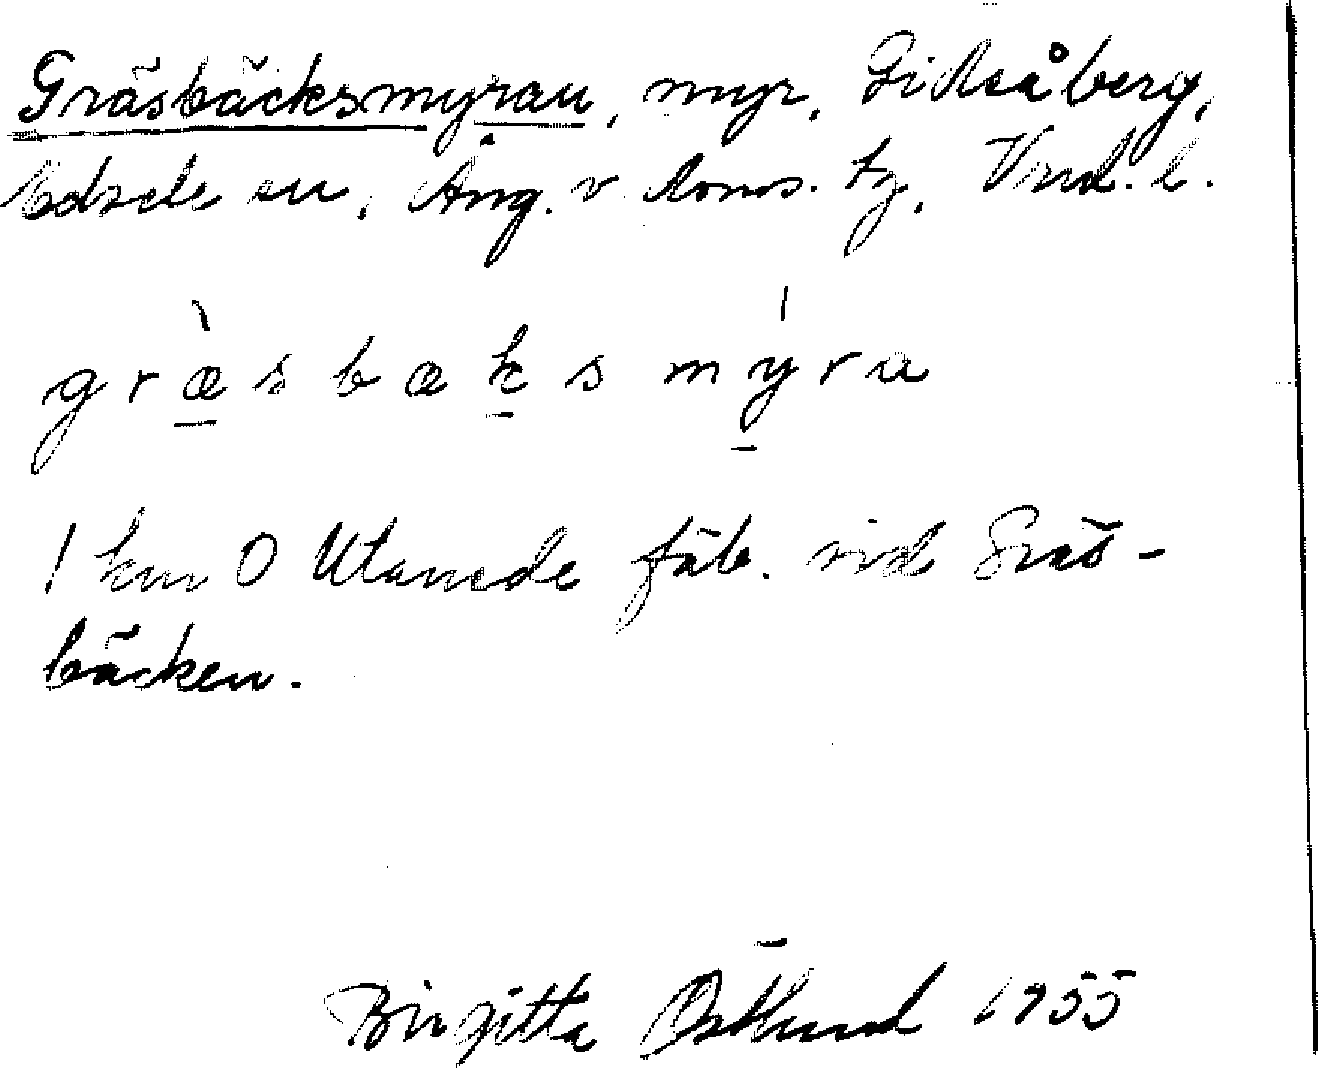 Gräsbäcksmyran, myr, Gideåberg,
Edsele sn, Ång. v. doms. tg, Vnd. l.
græsbæks mýra
1 km O Utanede fäb. vid Gräs-
bäcken.
Birgitta Östlund 1955